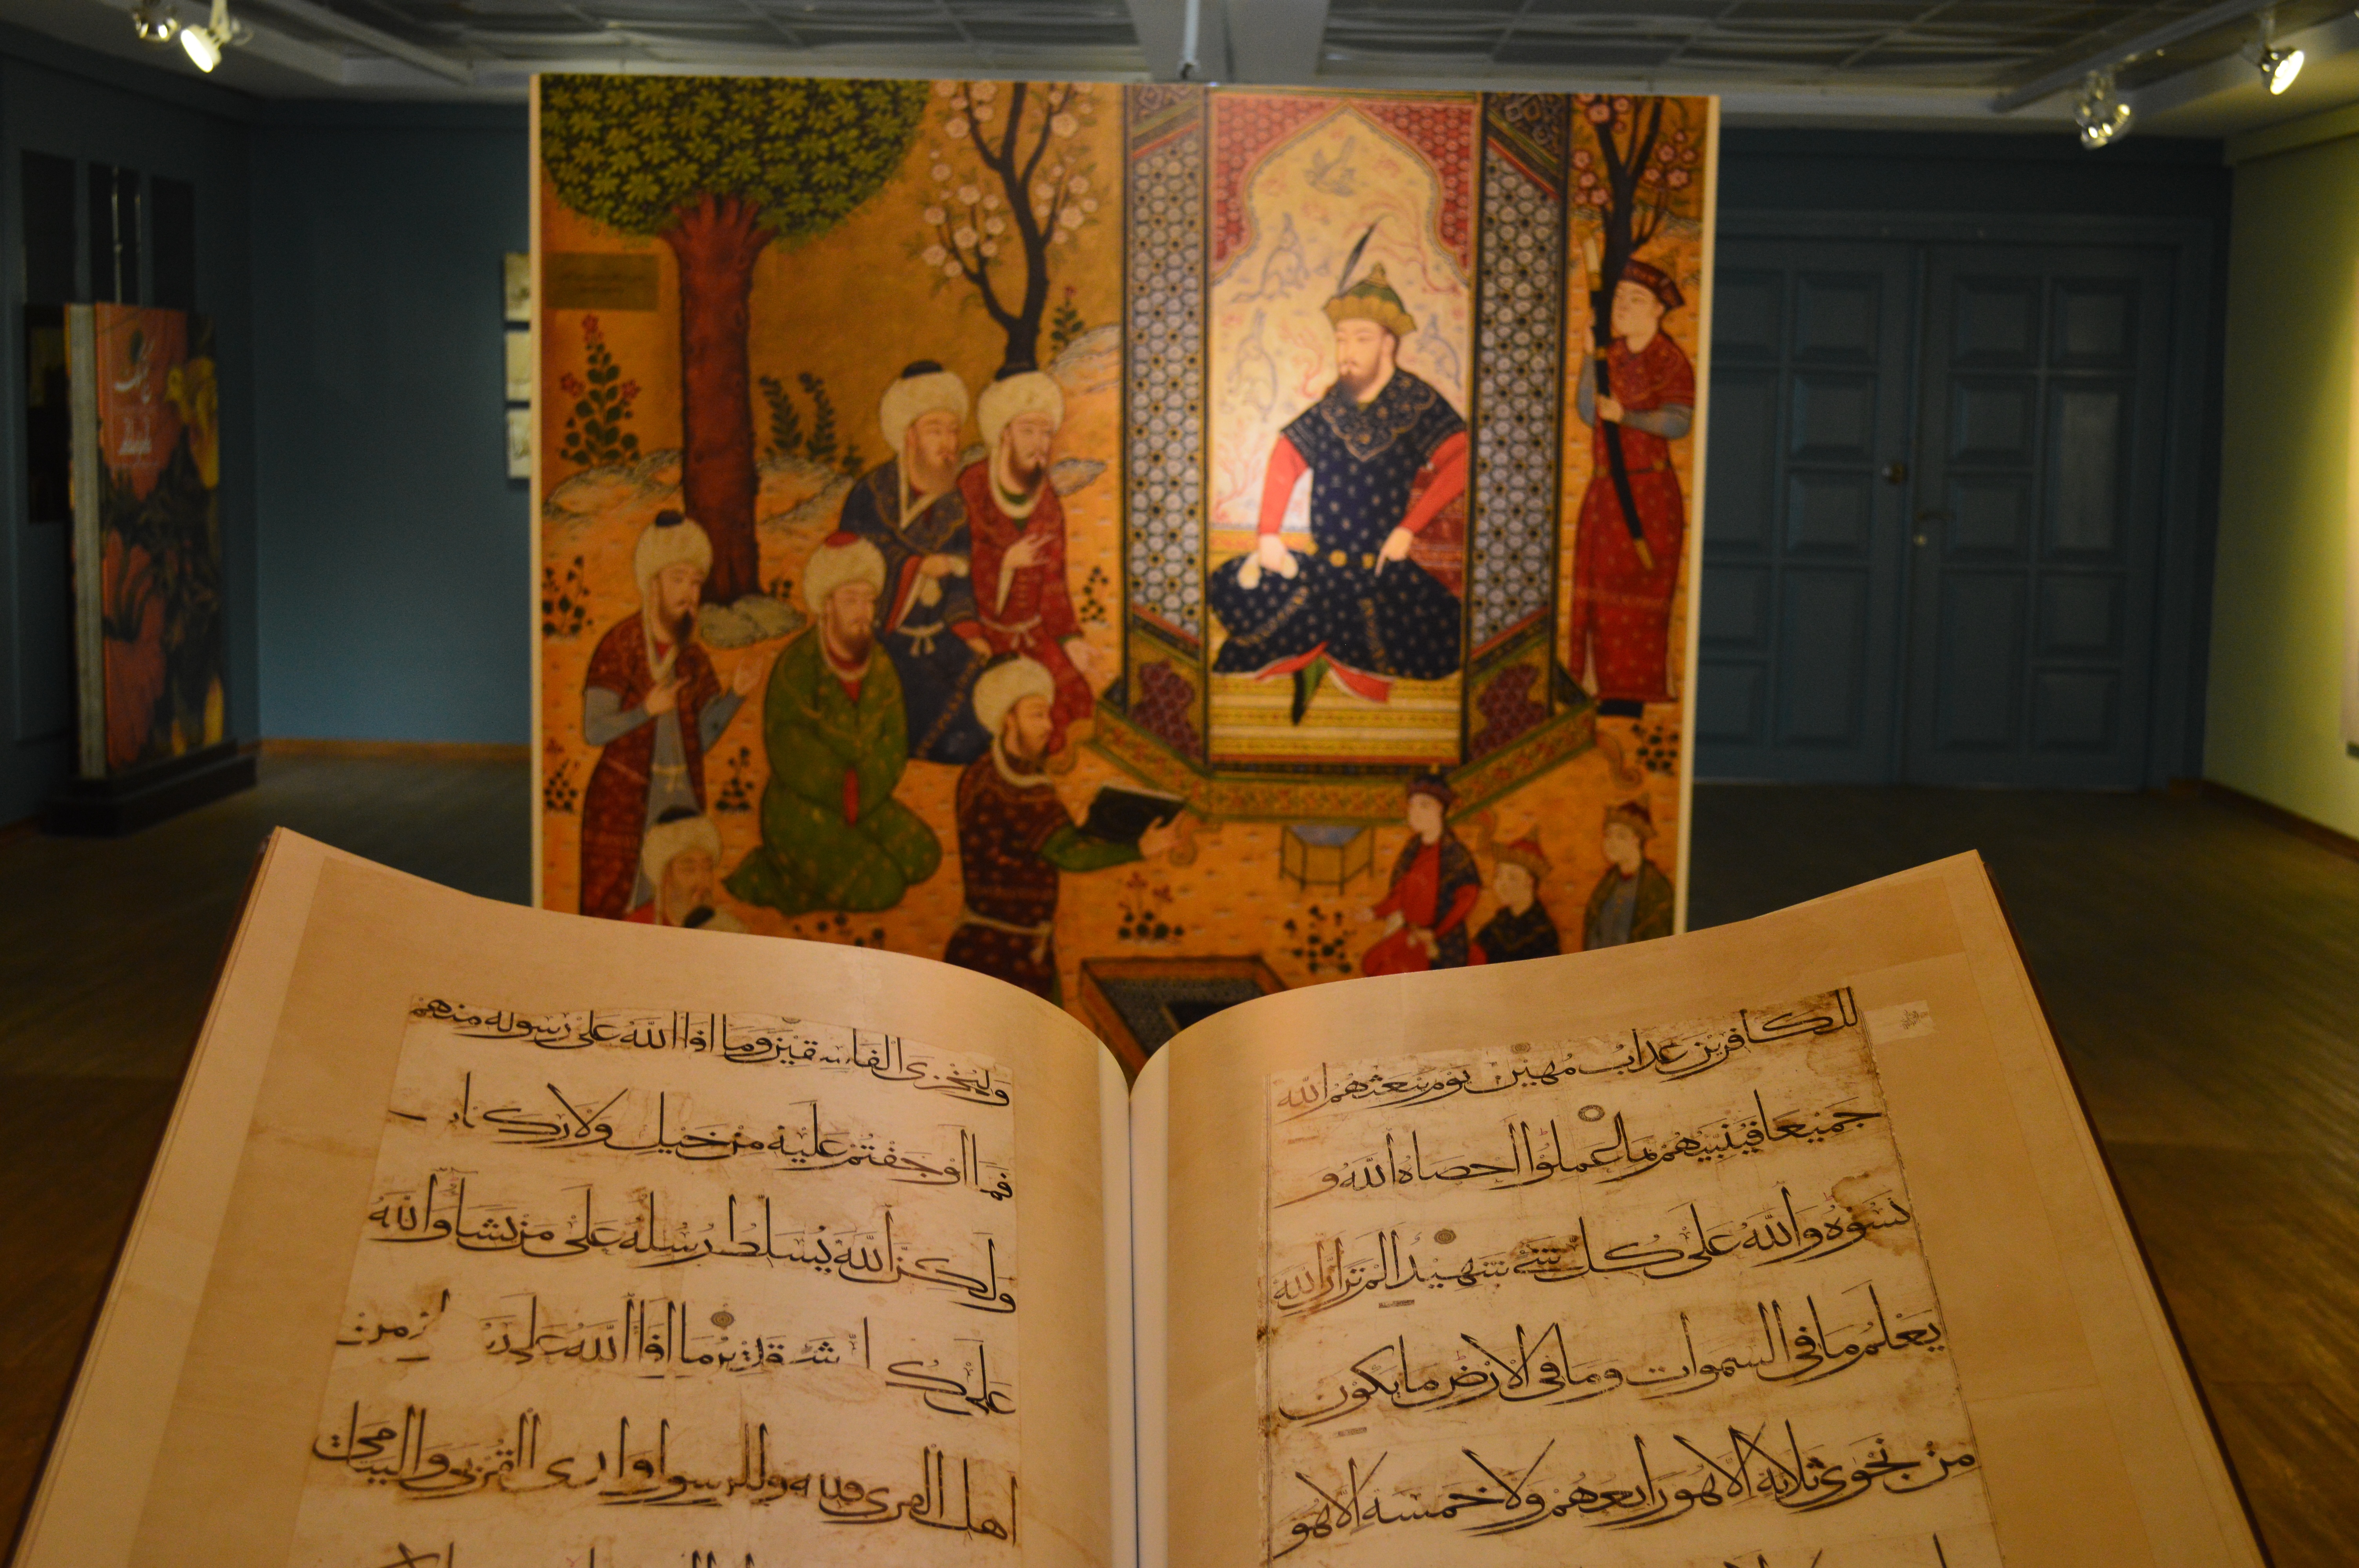 للكافرين عذاب مهين يوم يبعثهم الله
جميعا فينبيهم بما عملوا احصاه الله و
نسوه والله على كل شيء شهيد الم تر ان الله
يعلم ما في السموات وما في الارض ما يكون
من نجوى ثلاثة الا هو رابعهم ولا خمسة الا هو
وليخزي الفاسقين وما افا الله على رسوله منهم
فما اوجفتم عليه من خيل ولا ركاب
ولكن الله يسلط رسله على من يشا والله
على كل شي قدير ما افا الله على رسوله من
اهل القرى فلله وللرسول ولذي القربى واليتامى